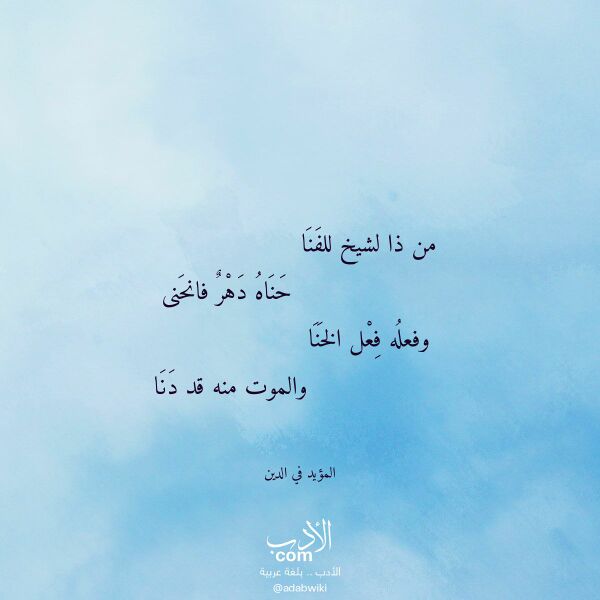 من ذا لشيخ للفَنَا
حَنَاهُ دَهْرٌ فانحَنى
وفعلُه فِعْل الخَنَا
والموت منه قد دَنَا
المؤيد في الدين
الأدب
com
الأدب .. بلغة عربية
@adabwiki